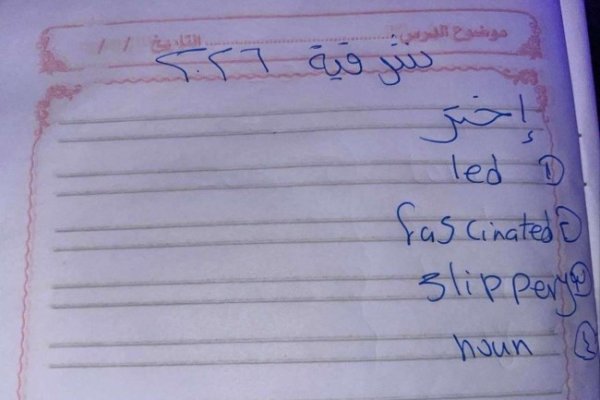 موضوع الدرس: التاريخ / /
شرقية ٢٠٢٦
إختر
١ led
٢ fascinated
٣ slippery
٤ noun